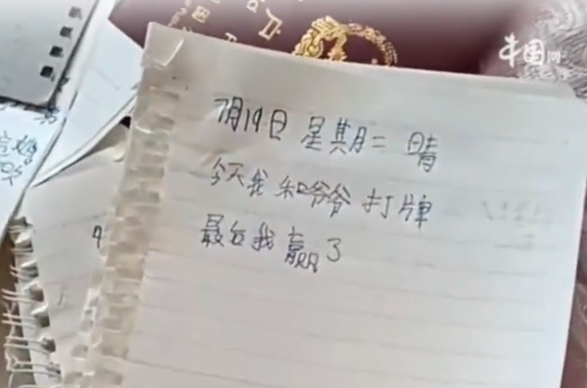 中国网
7月19日 星期二 晴
今天我和爷爷打牌
最后我赢了